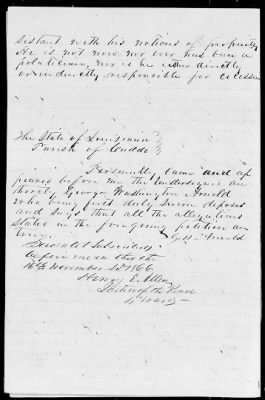 sistant with his notions of propriety
He is not now nor ever has been a
politician, nor is he either directly
or indirectly responsible for secession
The State of Louisiana
Parish of Caddo
Personally came and ap
pears before me the undersigned au
thority George Washington Arnold
who being first duly sworn deposes
and says that all the allegations
stated in the foregoing petition are
true.
G W Arnold
Sworn to & Subscribed
before me on this the
16th November AD 1866
Henry E. Allen
Justice of the Peace